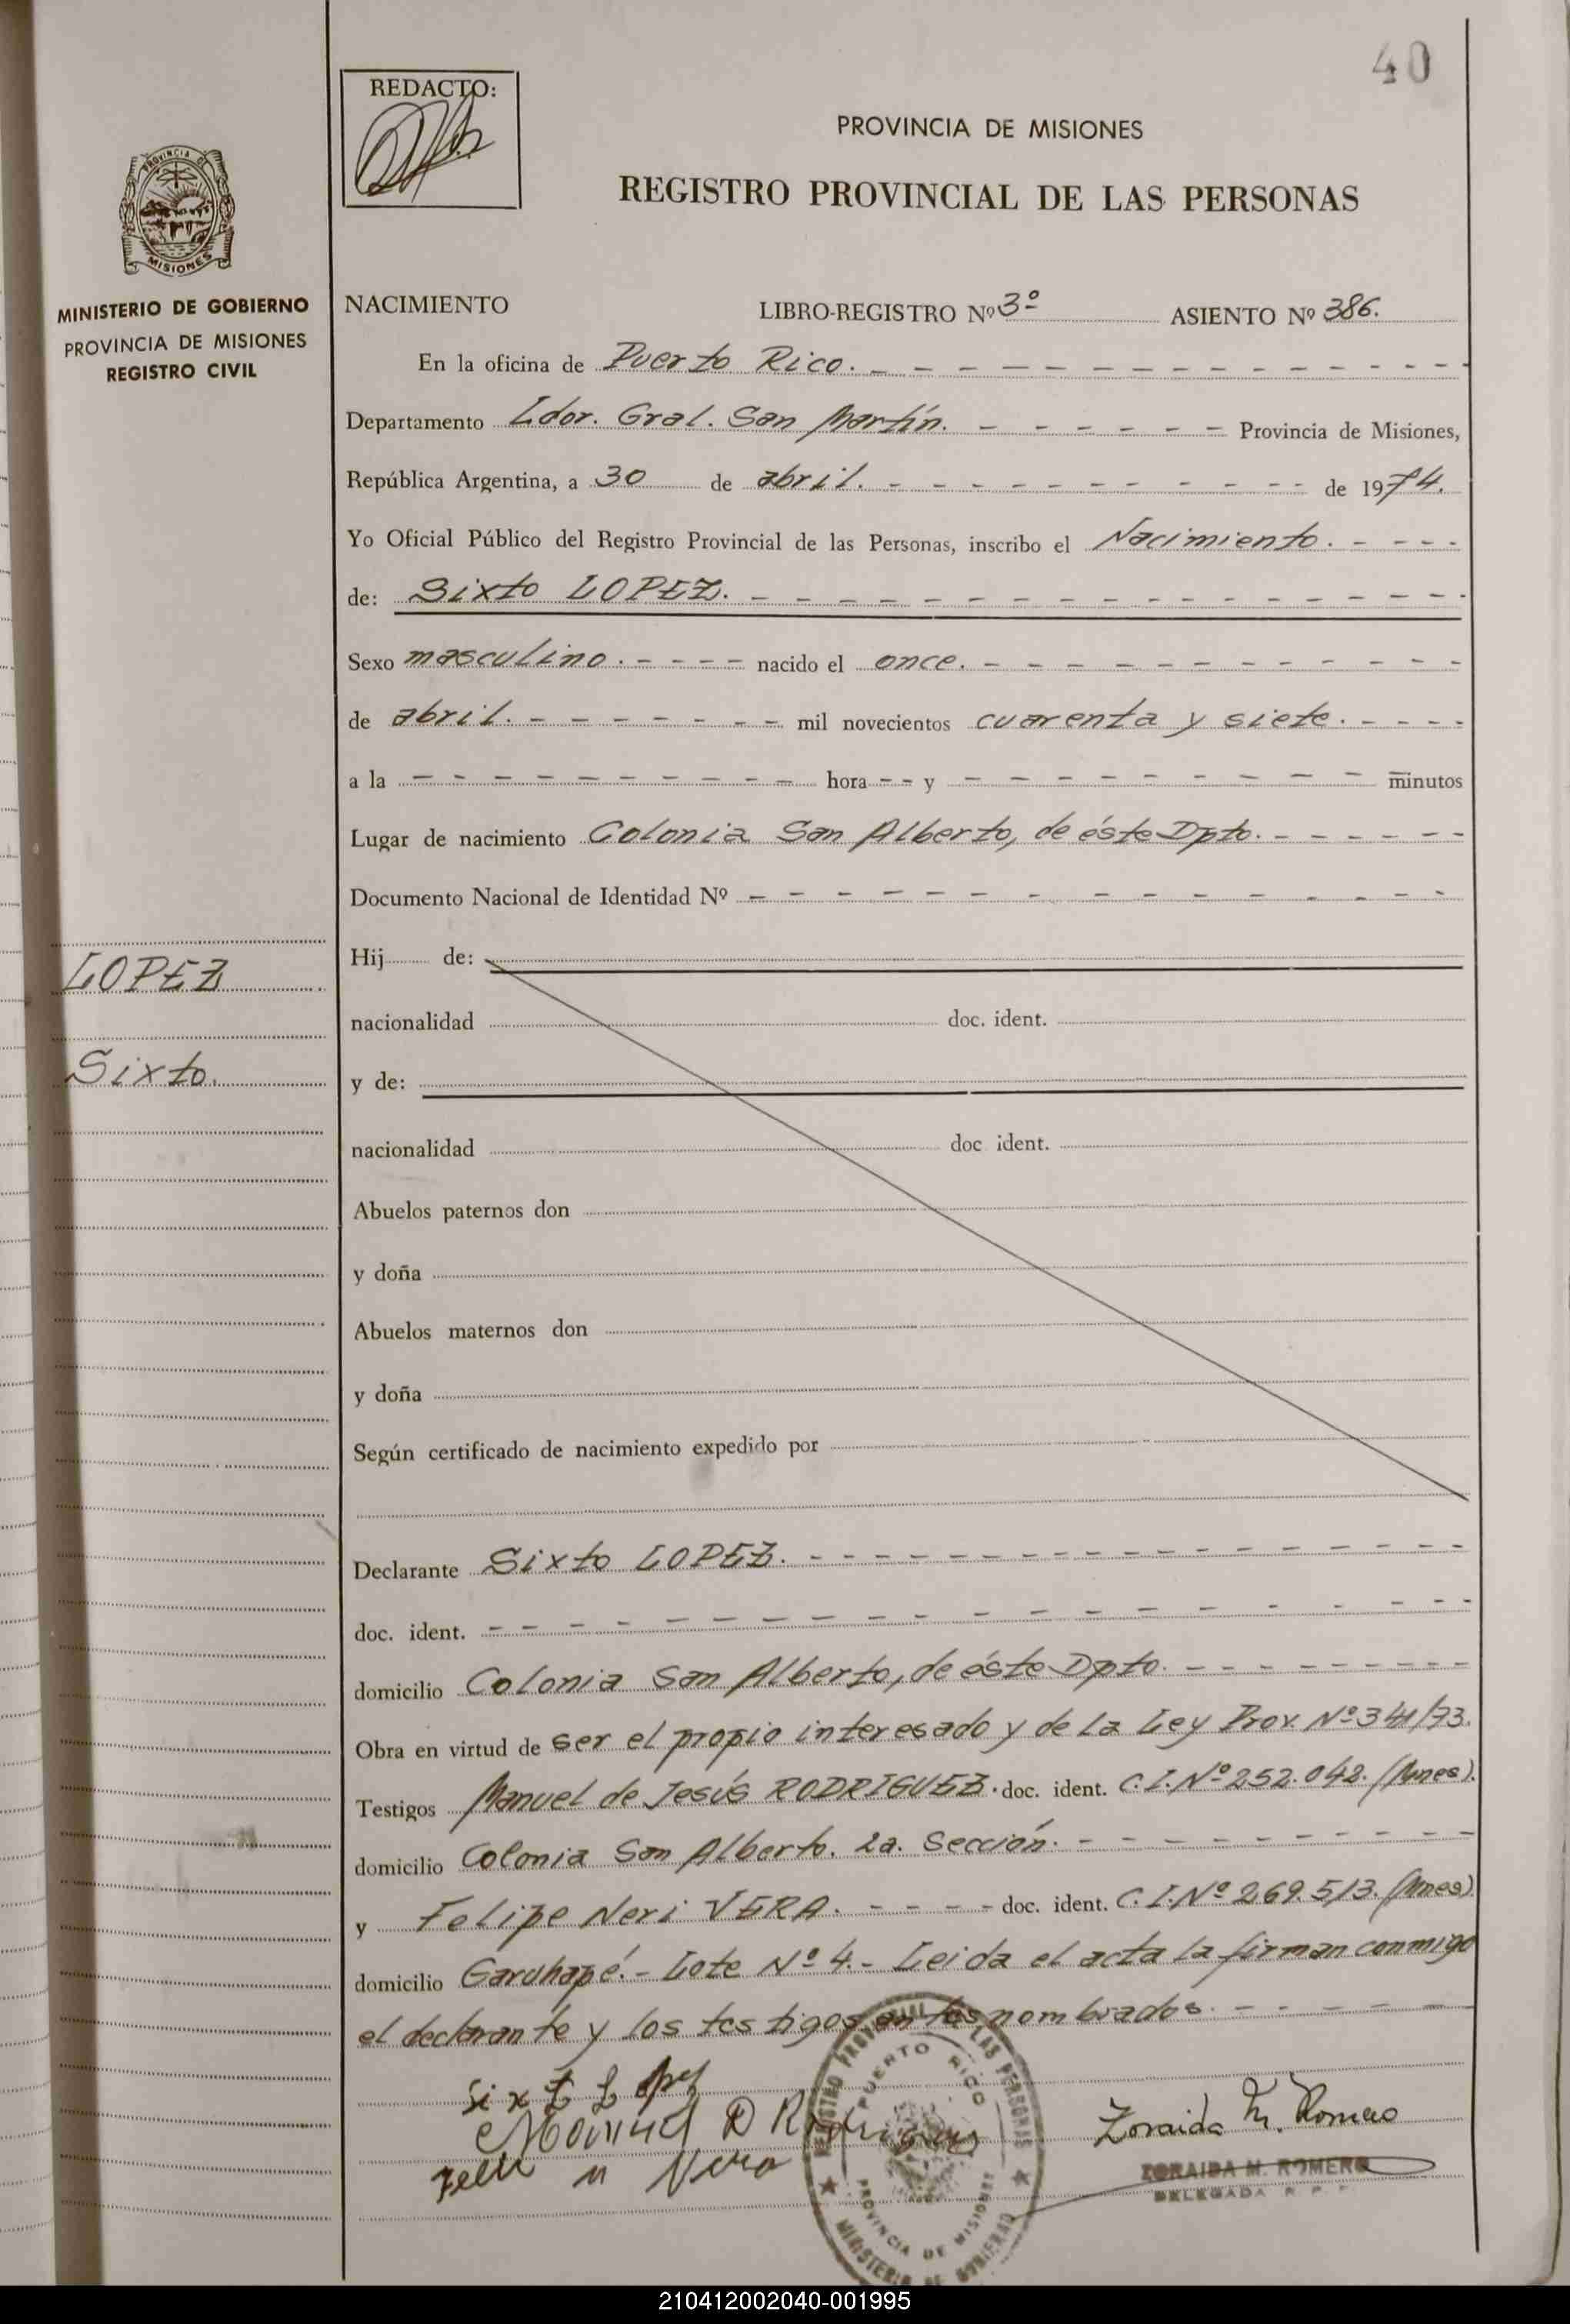 40
REDACTO:
PROVINCIA DE MISIONES
REGISTRO PROVINCIAL DE LAS PERSONAS
PROVINCIA DE
MISIONES
MINISTERIO DE GOBIERNO
PROVINCIA DE MISIONES
REGISTRO CIVIL
NACIMIENTO LIBRO-REGISTRO Nº 3º ASIENTO Nº 386.
En la oficina de Puerto Rico.
Departamento Ldor. Gral. San Martín. Provincia de Misiones,
República Argentina, a 30 de abril. de 1974.
Yo Oficial Público del Registro Provincial de las Personas, inscribo el Nacimiento.
de: Sixto LOPEZ.
Sexo masculino. nacido el once.
de abril. mil novecientos cuarenta y siete.
a la hora y minutos
Lugar de nacimiento Colonia San Alberto, de éste Dpto.
Documento Nacional de Identidad Nº
LOPEZ
Sixto.
Hij de:
nacionalidad doc. ident.
y de:
nacionalidad doc ident.
Abuelos paternos don
y doña
Abuelos maternos don
y doña
Según certificado de nacimiento expedido por
Declarante Sixto LOPEZ.
doc. ident.
domicilio Colonia San Alberto, de éste Dpto.
Obra en virtud de ser el propio interesado y de la Ley Prov. Nº 341/73.
Testigos Manuel de Jesús RODRIGUEZ. doc. ident. C.I. Nº 252.042. (Mnes).
domicilio Colonia San Alberto. 2a. Sección.
y Felipe Neri VERA. doc. ident. C.I. Nº 269.513. (Mnes)
domicilio Garuhapé. - Lote Nº 4. - Leida el acta la firman conmigo
el declarante y los testigos antes nombrados.
Sixto Lopez
Manuel D Rodriguez
Vera
REGISTRO PROVINCIAL DE LAS PERSONAS
PUERTO RICO
PROVINCIA DE MISIONES
MINISTERIO DE GOBIERNO
Zoraida M. Romero
ZORAIDA M. ROMERO
DELEGADA R. P. P.
210412002040-001995